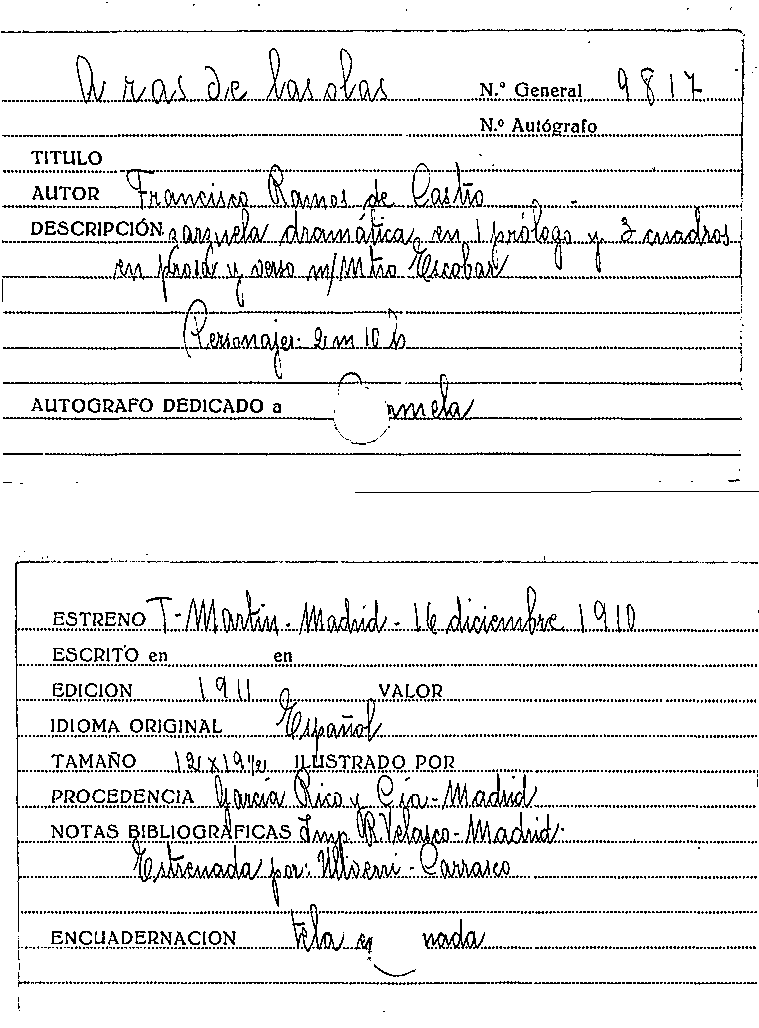 A ras de las olas
N.º General 9817
N.º Autógrafo
TITULO
AUTOR Francisco Ramos de Castro
DESCRIPCIÓN zarzuela dramática, en 1 prólogo y 3 cuadros
en prosa y verso m/Mtro Escobar
Personajes: 2 m 10 h
AUTOGRAFO DEDICADO a rmela
ESTRENO T- Martin - Madrid - 16 diciembre 1910
ESCRITO en en
EDICION 1911 VALOR
IDIOMA ORIGINAL Español
TAMAÑO 12 x 19 1/2 ILUSTRADO POR
PROCEDENCIA Garcia Rico y Cía - Madrid
NOTAS BIBLIOGRAFICAS Imp. R. Velasco - Madrid.
Estrenada por: - Carrasco
ENCUADERNACION tela en nada